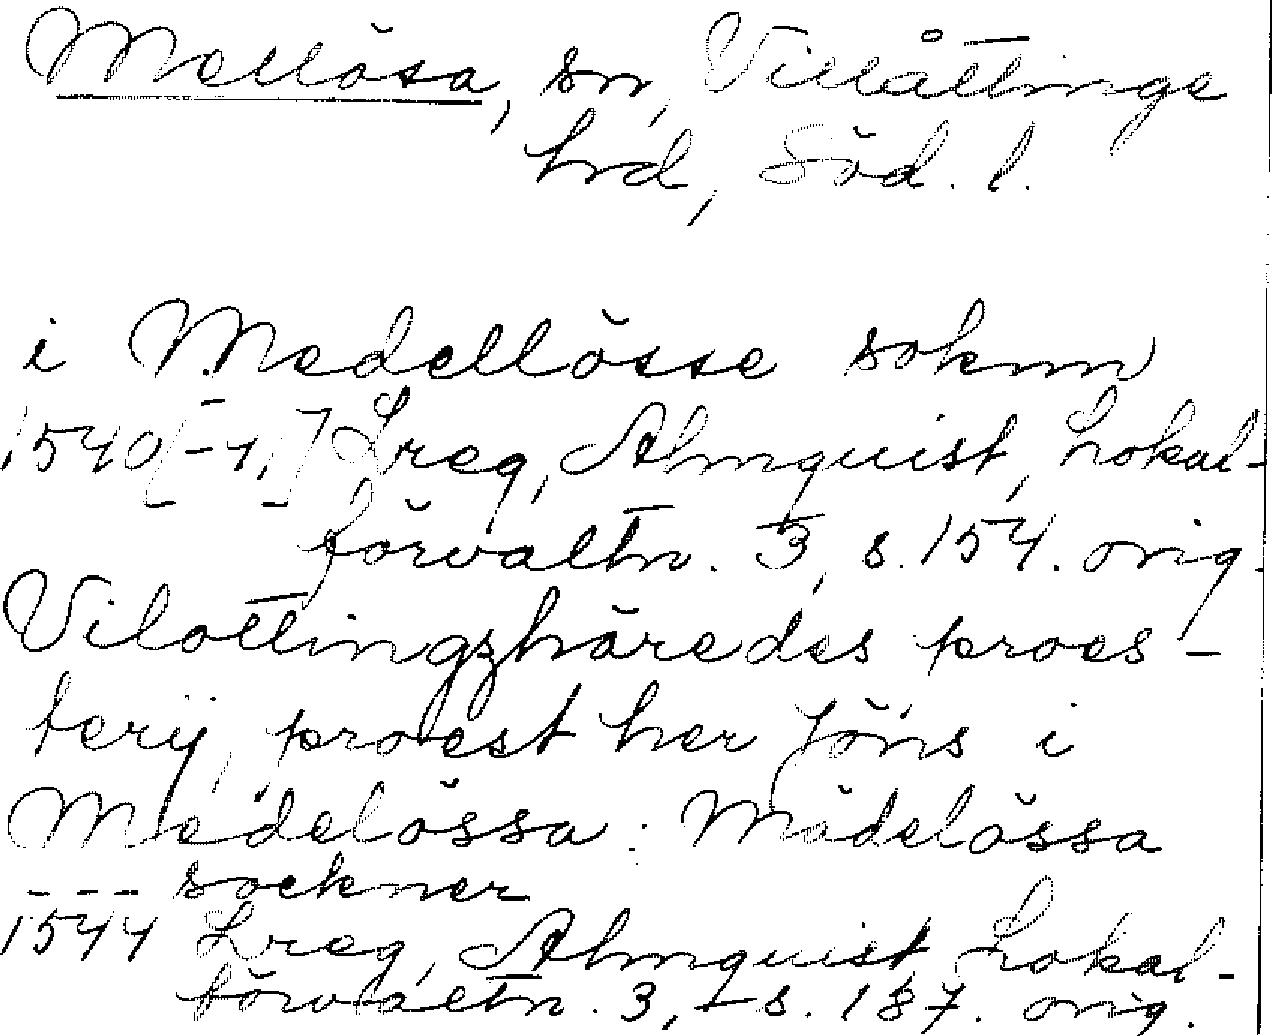 Mellösa, sn, Villåttinge
hrd, Söd. l.
i Medellösse soknn
1540[-41] Lreg, Almquist, Lokal-
förvaltn. 3, s. 154. orig.
Vilottingzhäredes proes-
terij, proest her Jöns i
Medelössa : Mädelössa
--- sockner
1544 Lreg, Almquist, Lokal-
förvaltn. 3, s. 187. orig.